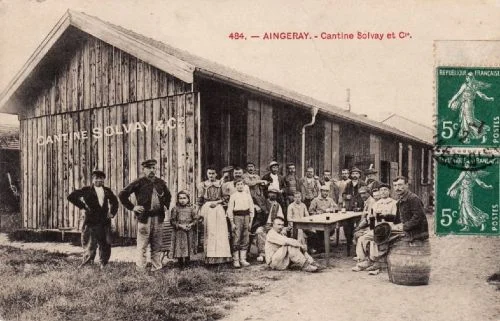 484. — AINGERAY. - Cantine Solvay et Cie.
CANTINE SOLVAY & Cie
RÉPUBLIQUE FRANÇAISE
5c
POSTES
RÉPUBLIQUE FRANÇAISE
5c
POSTES